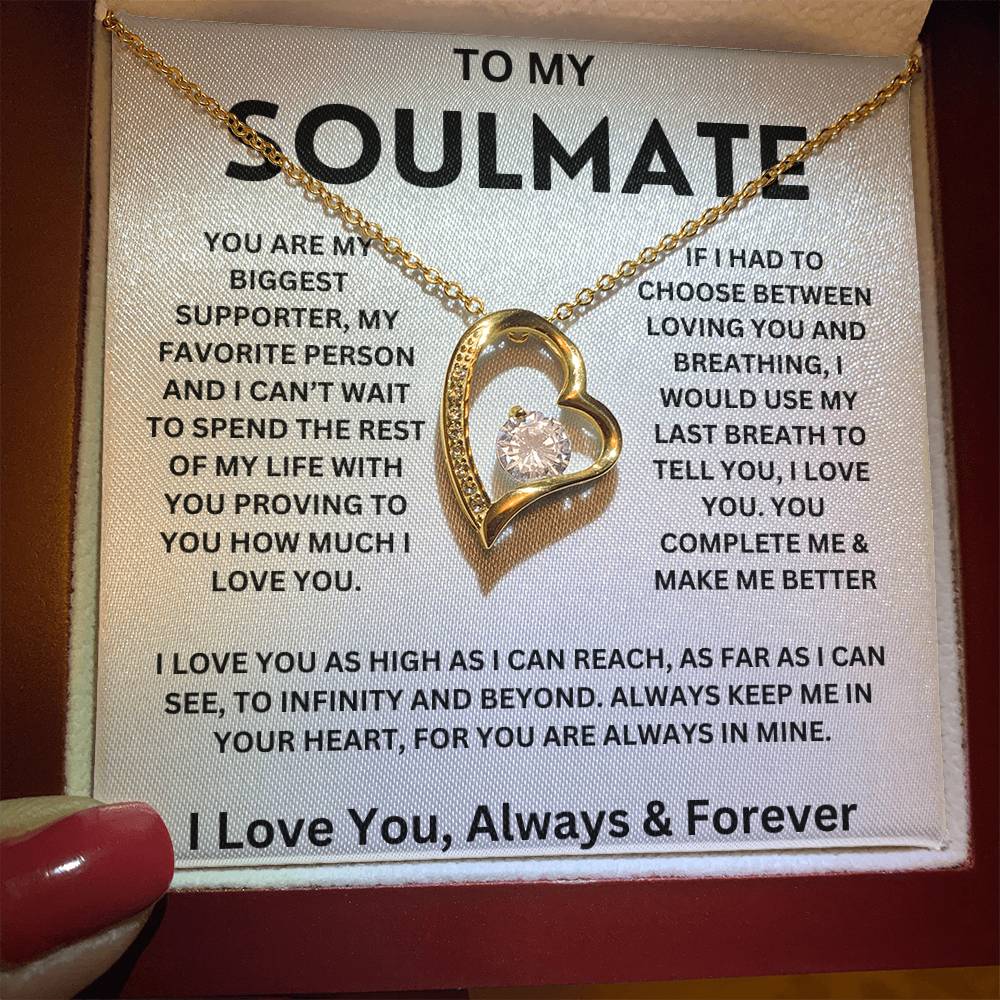 TO MY
SOULMATE
YOU ARE MY
BIGGEST
SUPPORTER, MY
FAVORITE PERSON
AND I CAN'T WAIT
TO SPEND THE REST
OF MY LIFE WITH
YOU PROVING TO
YOU HOW MUCH I
LOVE YOU.
IF I HAD TO
CHOOSE BETWEEN
LOVING YOU AND
BREATHING, I
WOULD USE MY
LAST BREATH TO
TELL YOU, I LOVE
YOU. YOU
COMPLETE ME &
MAKE ME BETTER
I LOVE YOU AS HIGH AS I CAN REACH, AS FAR AS I CAN
SEE, TO INFINITY AND BEYOND. ALWAYS KEEP ME IN
YOUR HEART, FOR YOU ARE ALWAYS IN MINE.
I Love You, Always & Forever